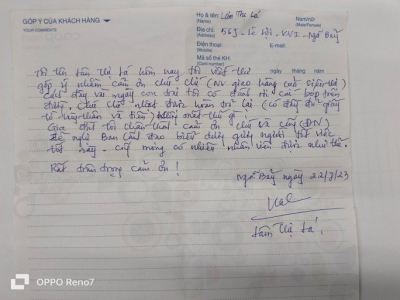 GÓP Ý CỦA KHÁCH HÀNG
YOUR COMMENTS
Họ & tên: Lâm Thị Lá
(Name)
Nam/nữ
(Male/Female)
Địa chỉ: 569 - Lê Hồi - KV I - Ngã Bảy
(Address)
Điện thoại
(Mobile)
E-mail
Mã số thẻ KH
(Card number)
ngày tháng năm
Tôi tên Lâm Thị Lá hôm nay tôi viết thư
góp ý nhằm cảm ơn chú (NV giao hàng của Siêu thị)
Cách đây vài ngày con trai tôi có đánh rơi cái bóp trên
được hoàn trả lại (có đầy đủ giấy
tờ tùy thân và tiền) không mất thứ gì.
Gia đình tôi chân thành cảm ơn chú
Đề nghị Ban lãnh đạo biểu dương người tốt việc
tốt này. có nhiều nhân viên như thế.
Rất trân trọng cảm ơn!
Ngã Bảy ngày 22/7/23
Lâm Thị Lá.
OPPO Reno7